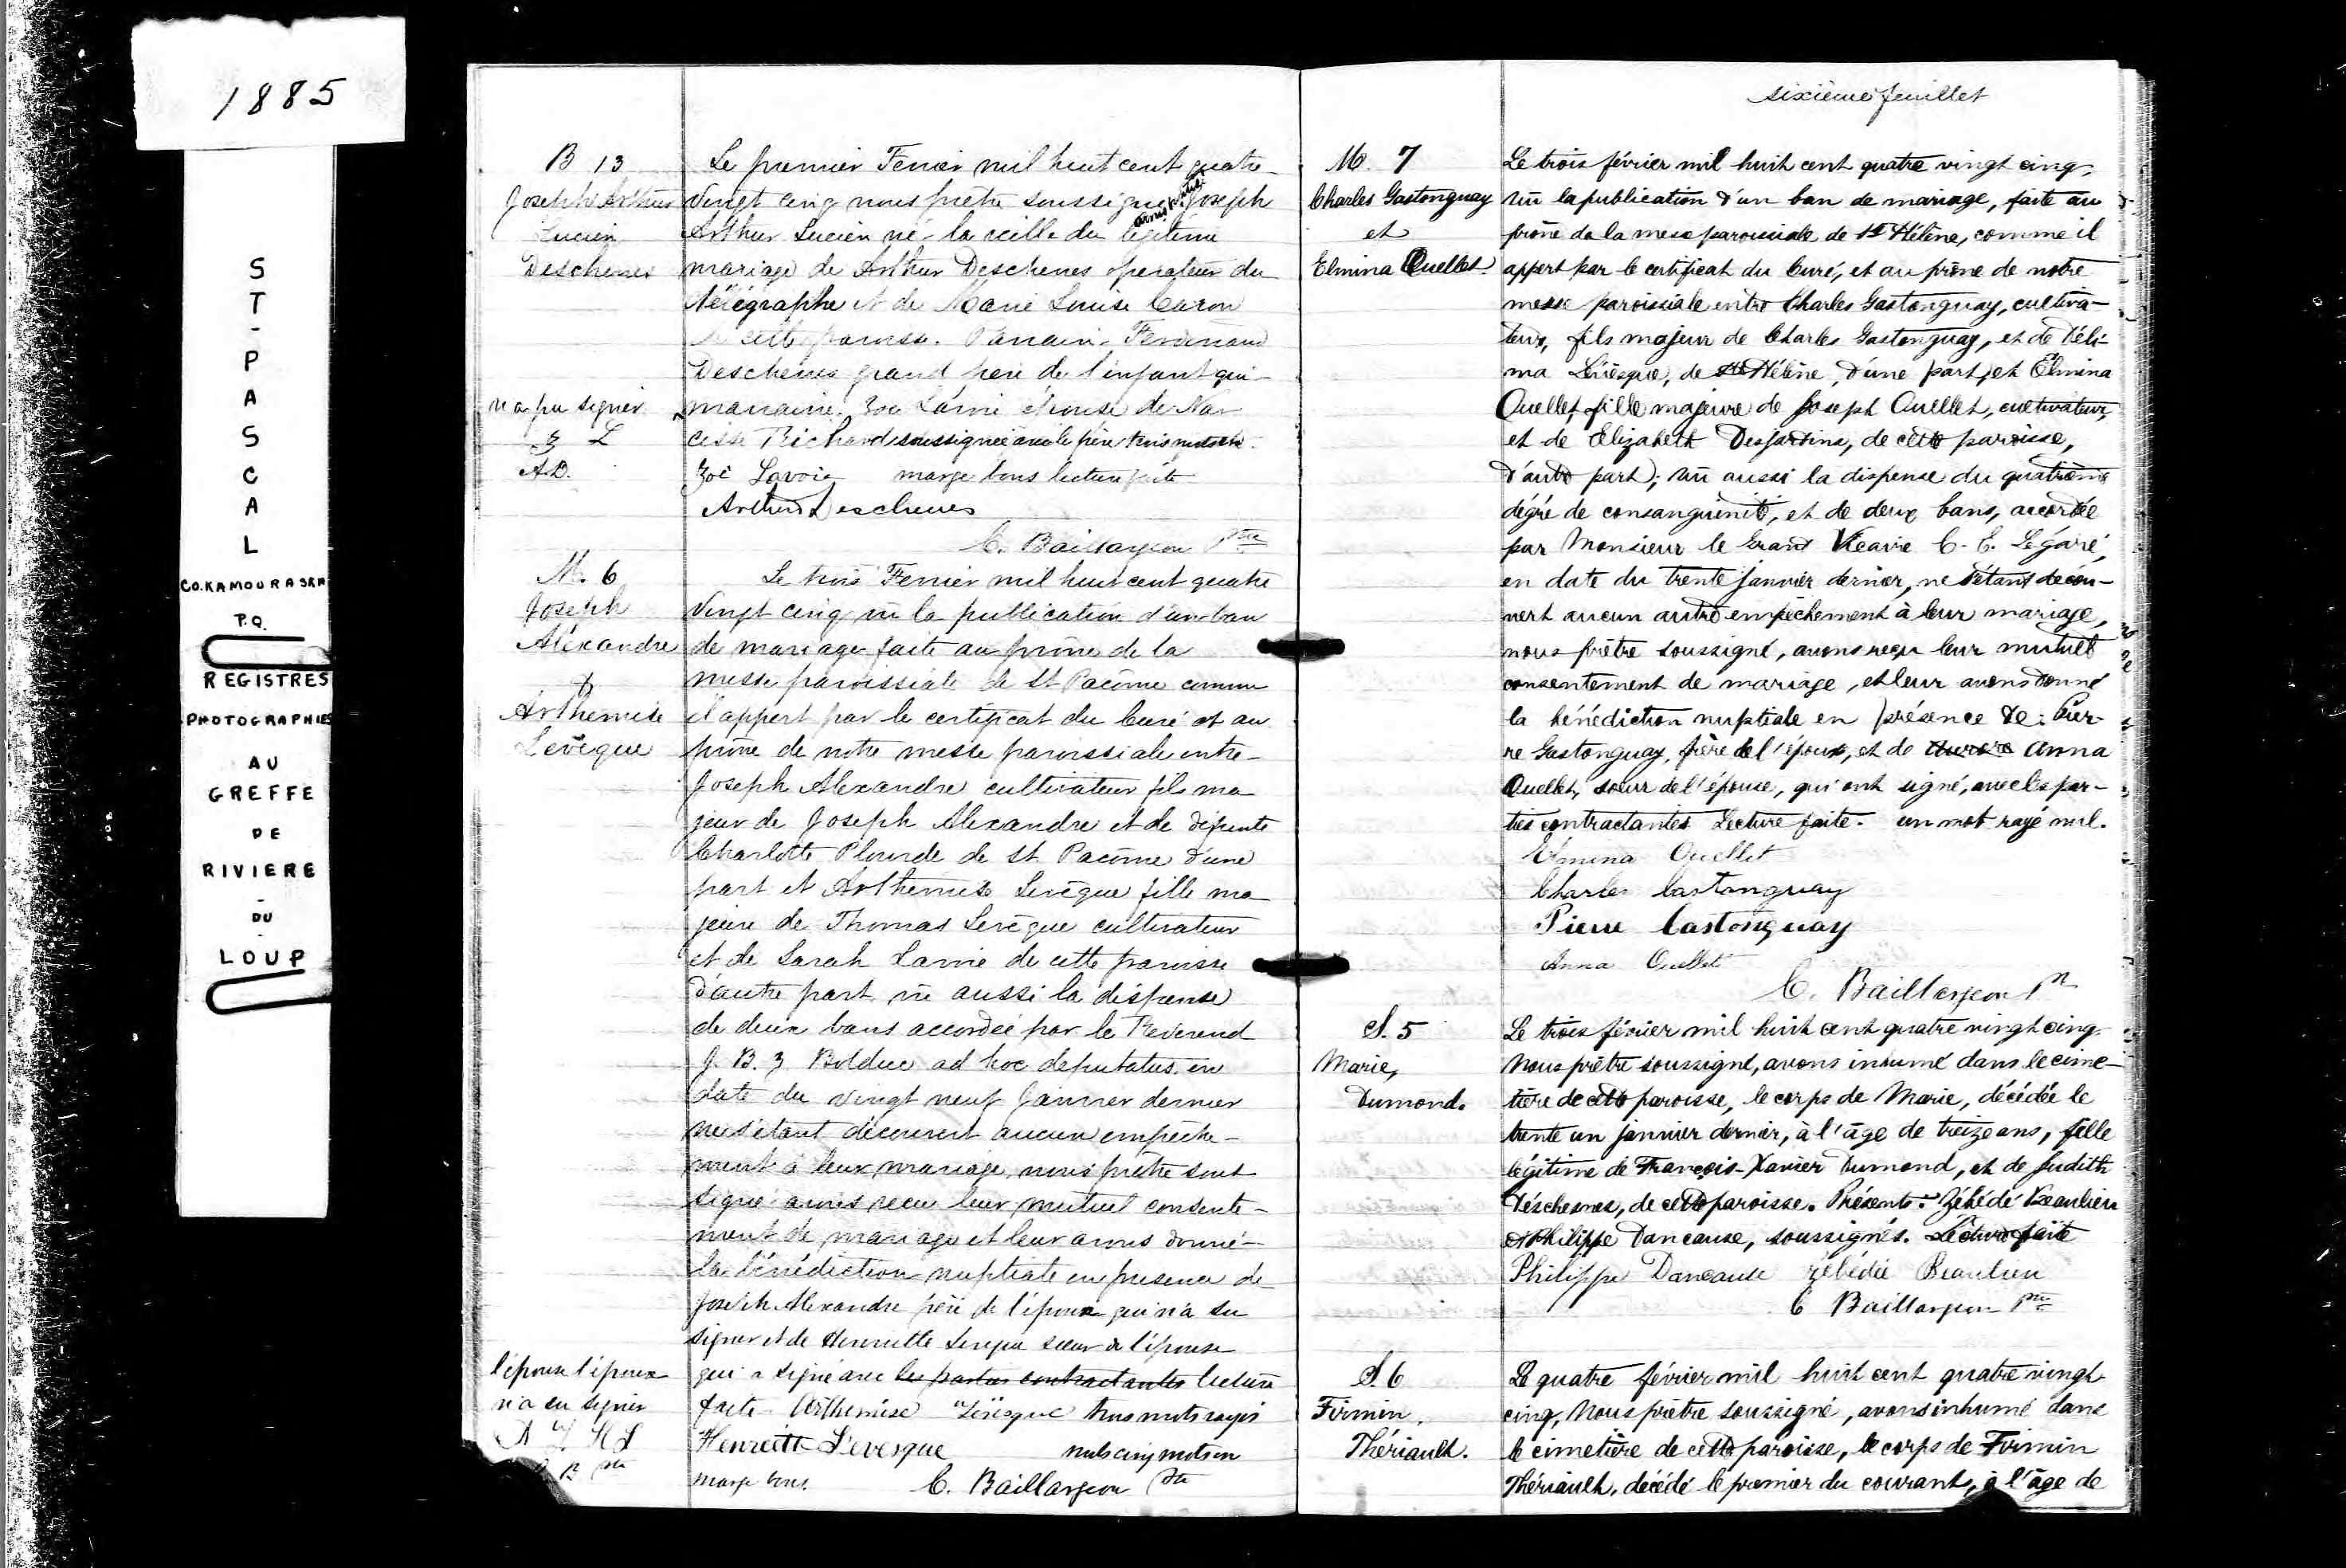 1885
ST-PASCAL
CO. KAMOURASKA
P.Q.
REGISTRES
PHOTOGRAPHIES
AU
GREFFE
DE
RIVIERE
-
DU
-
LOUP
B 13
Joseph Arthur
Lucien
Deschenes
n'a pu signer
Z L
A.D.
Le premier Fevrier mil huit cent quatre
vingt cinq nous prêtre soussigné avons baptisé Joseph
Arthur Lucien né la veille du légitime
mariage de Arthur Deschenes operateur du
télégraphe et de Marie Louise Caron
de cette paroisse. Parrain Ferdinand
Deschenes grand père de l'enfant qui
marraine Zoé Lavoie épouse de Nar
cisse Richard soussignée avec le père trois mots en
Zoé Lavoie marge bons lecture faite
Arthur Deschenes
C. Baillargeon Ptre
M. 6
Joseph
Alexandre
&
Arthemise
Levêque
Le trois Fevrier mil huit cent quatre
vingt cinq vu la publication d'un ban
de mariage faite au prône de la
messe paroissiale de St Pacôme comme
il appert par le certificat du Curé et au
prône de notre messe paroissiale entre
Joseph Alexandre cultivateur fils ma
jeur de Joseph Alexandre et de défunte
Charlotte Plourde de St Pacôme d'une
part et Arthemise Levêque fille ma
jeure de Thomas Levêque cultivateur
et de Sarah Lavoie de cette paroisse
d'autre part vu aussi la dispense
de deux bans accordée par le Reverend
J. B. Z Bolduc ad hoc deputatus en
date du vingt neuf Janvier dernier
ne s'étant découvert aucun empêche-
ment à leur mariage, nous prêtre sous
signé avons recu leur mutuel consente-
ment de mariage et leur avons donné
la bénédiction nuptiale en presence de
Joseph Alexandre père de l'époux qui n'a su
signer et de Henriette Leveque soeur de l'épouse
l'épouse l'époux
n'a su signer
A L H L
C B Ptre
qui a signé avec les parties contractantes lecture
faite Arthémise Lévesque trois mots rayés
Henriette Levesque nuls cinq mots en
marge bons. C. Baillargeon Ptre
sixième feuillet
M. 7
Charles Gastonguay
et
Elmina Ouellet
Le trois février mil huit cent quatre vingt cinq,
vu la publication d'un ban de mariage, faite au
prône de la messe paroissiale de Ste Hélène, comme il
appert par le certificat du Curé, et au prône de notre
messe paroissiale entre Charles Gastonguay, cultiva-
teur, fils majeur de Charles Gastonguay, et de Déli-
ma Lévèsque, de Ste Hélène, d'une part, et Elmina
Ouellet, fille majeure de Joseph Ouellet, cultivateur,
et de Elizabeth Desjardins, de cette paroisse,
d'autre part; vu aussi la dispense du quatrième
dégré de consanguinité, et de deux bans, accordée
par Monsieur le Grand Vicaire C. E. Légaré,
en date du trente janvier dernier, ne s'étant décou-
vert aucun autre empêchement à leur mariage,
nous prêtre soussigné, avons reçu leur mutuel
consentement de mariage, et leur avons donné
la bénédiction nuptiale en présence de: Pier-
re Gastonguay, frère de l'époux, et de Aurore Anna
Ouellet, soeur de l'épouse, qui ont signé, avec les par-
ties contractantes Lecture faite. un mot rayé nul.
Elmina Ouellet
Charles Castonguay
Pierre Castonguay
Anna Ouellet
C. Baillargeon Ptr
S. 5
Marie,
Dumond.
Le trois février mil huit cent quatre vingt cinq
Nous prêtre soussigné, avons inhumé dans le cime-
tière de cette paroisse, le corps de Marie, décédée le
trente un janvier dernier, à l'âge de treize ans, fille
légitime de François-Xavier Dumond, et de Judith
Déschesnes, de cette paroisse. Présents: Zébédé Beaulieu
et Philippe Dancause, soussignés. Lecture faite
Philippe Dancause Zébédée Beaulieu
C Baillargeon Ptre
S. 6
Firmin,
Thériault.
Le quatre février mil huit cent quatre vingt
cinq, Nous prêtre soussigné, avons inhumé dans
le cimetière de cette paroisse, le corps de Firmin
Thériault, décédé le premier du courant, à l'âge de